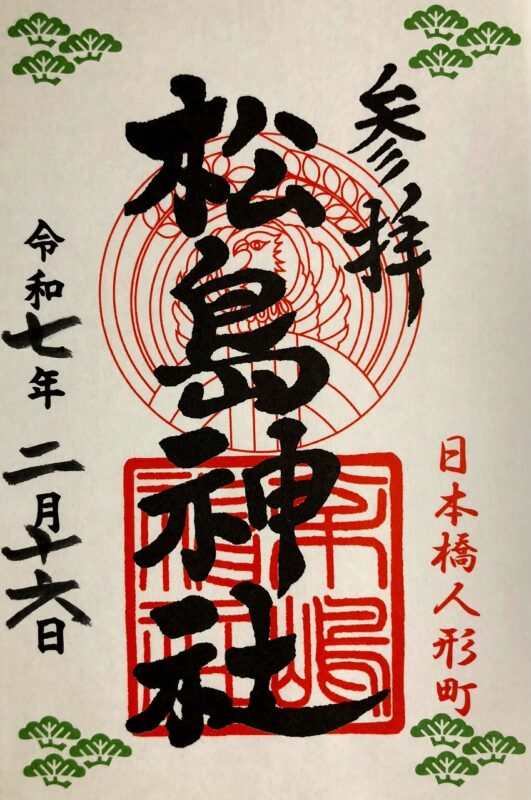 参拝
日本橋人形町
松島神社
令和七年二月十六日